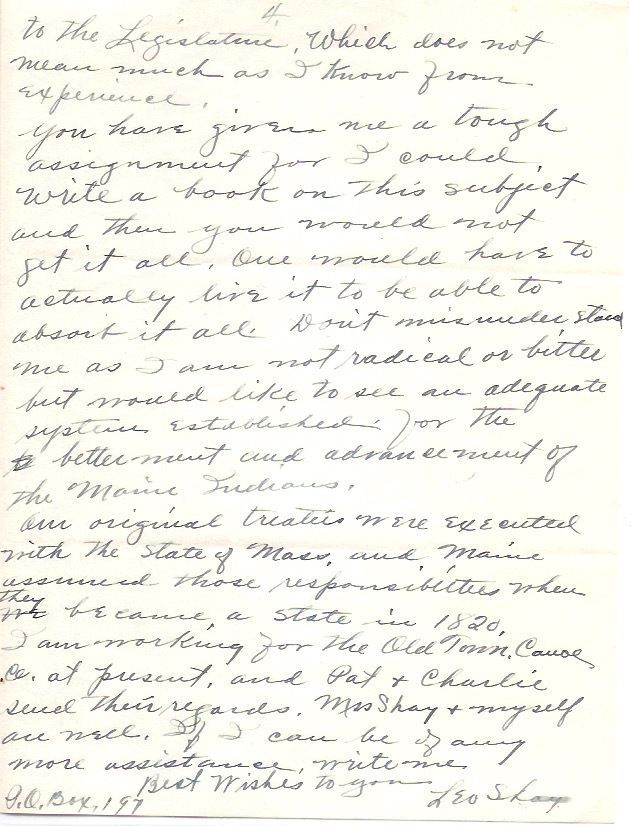 4.
to the Legislature, Which does not
mean much as I know from
experience.
You have given me a tough
assignment for I could
write a book on this subject
and then you would not
get it all. One would have to
actually live it to be able to
absorb it all. Don't misunderstand
me as I am not radical or bitter
but would like to see an adequate
system established for the
betterment and advancement of
the Maine Indians.
Our original treaties were executed
with the State of Mass, and Maine
assumed those responsibilities when
they
we became a State in 1820.
I am working for the Old Town Canoe
Co. at present, and Pat & Charlie
send their regards. Mrs Shay & myself
are well. If I can be of any
more assistance, write me
Best Wishes to you
P.O. Box, 197 Leo Shay